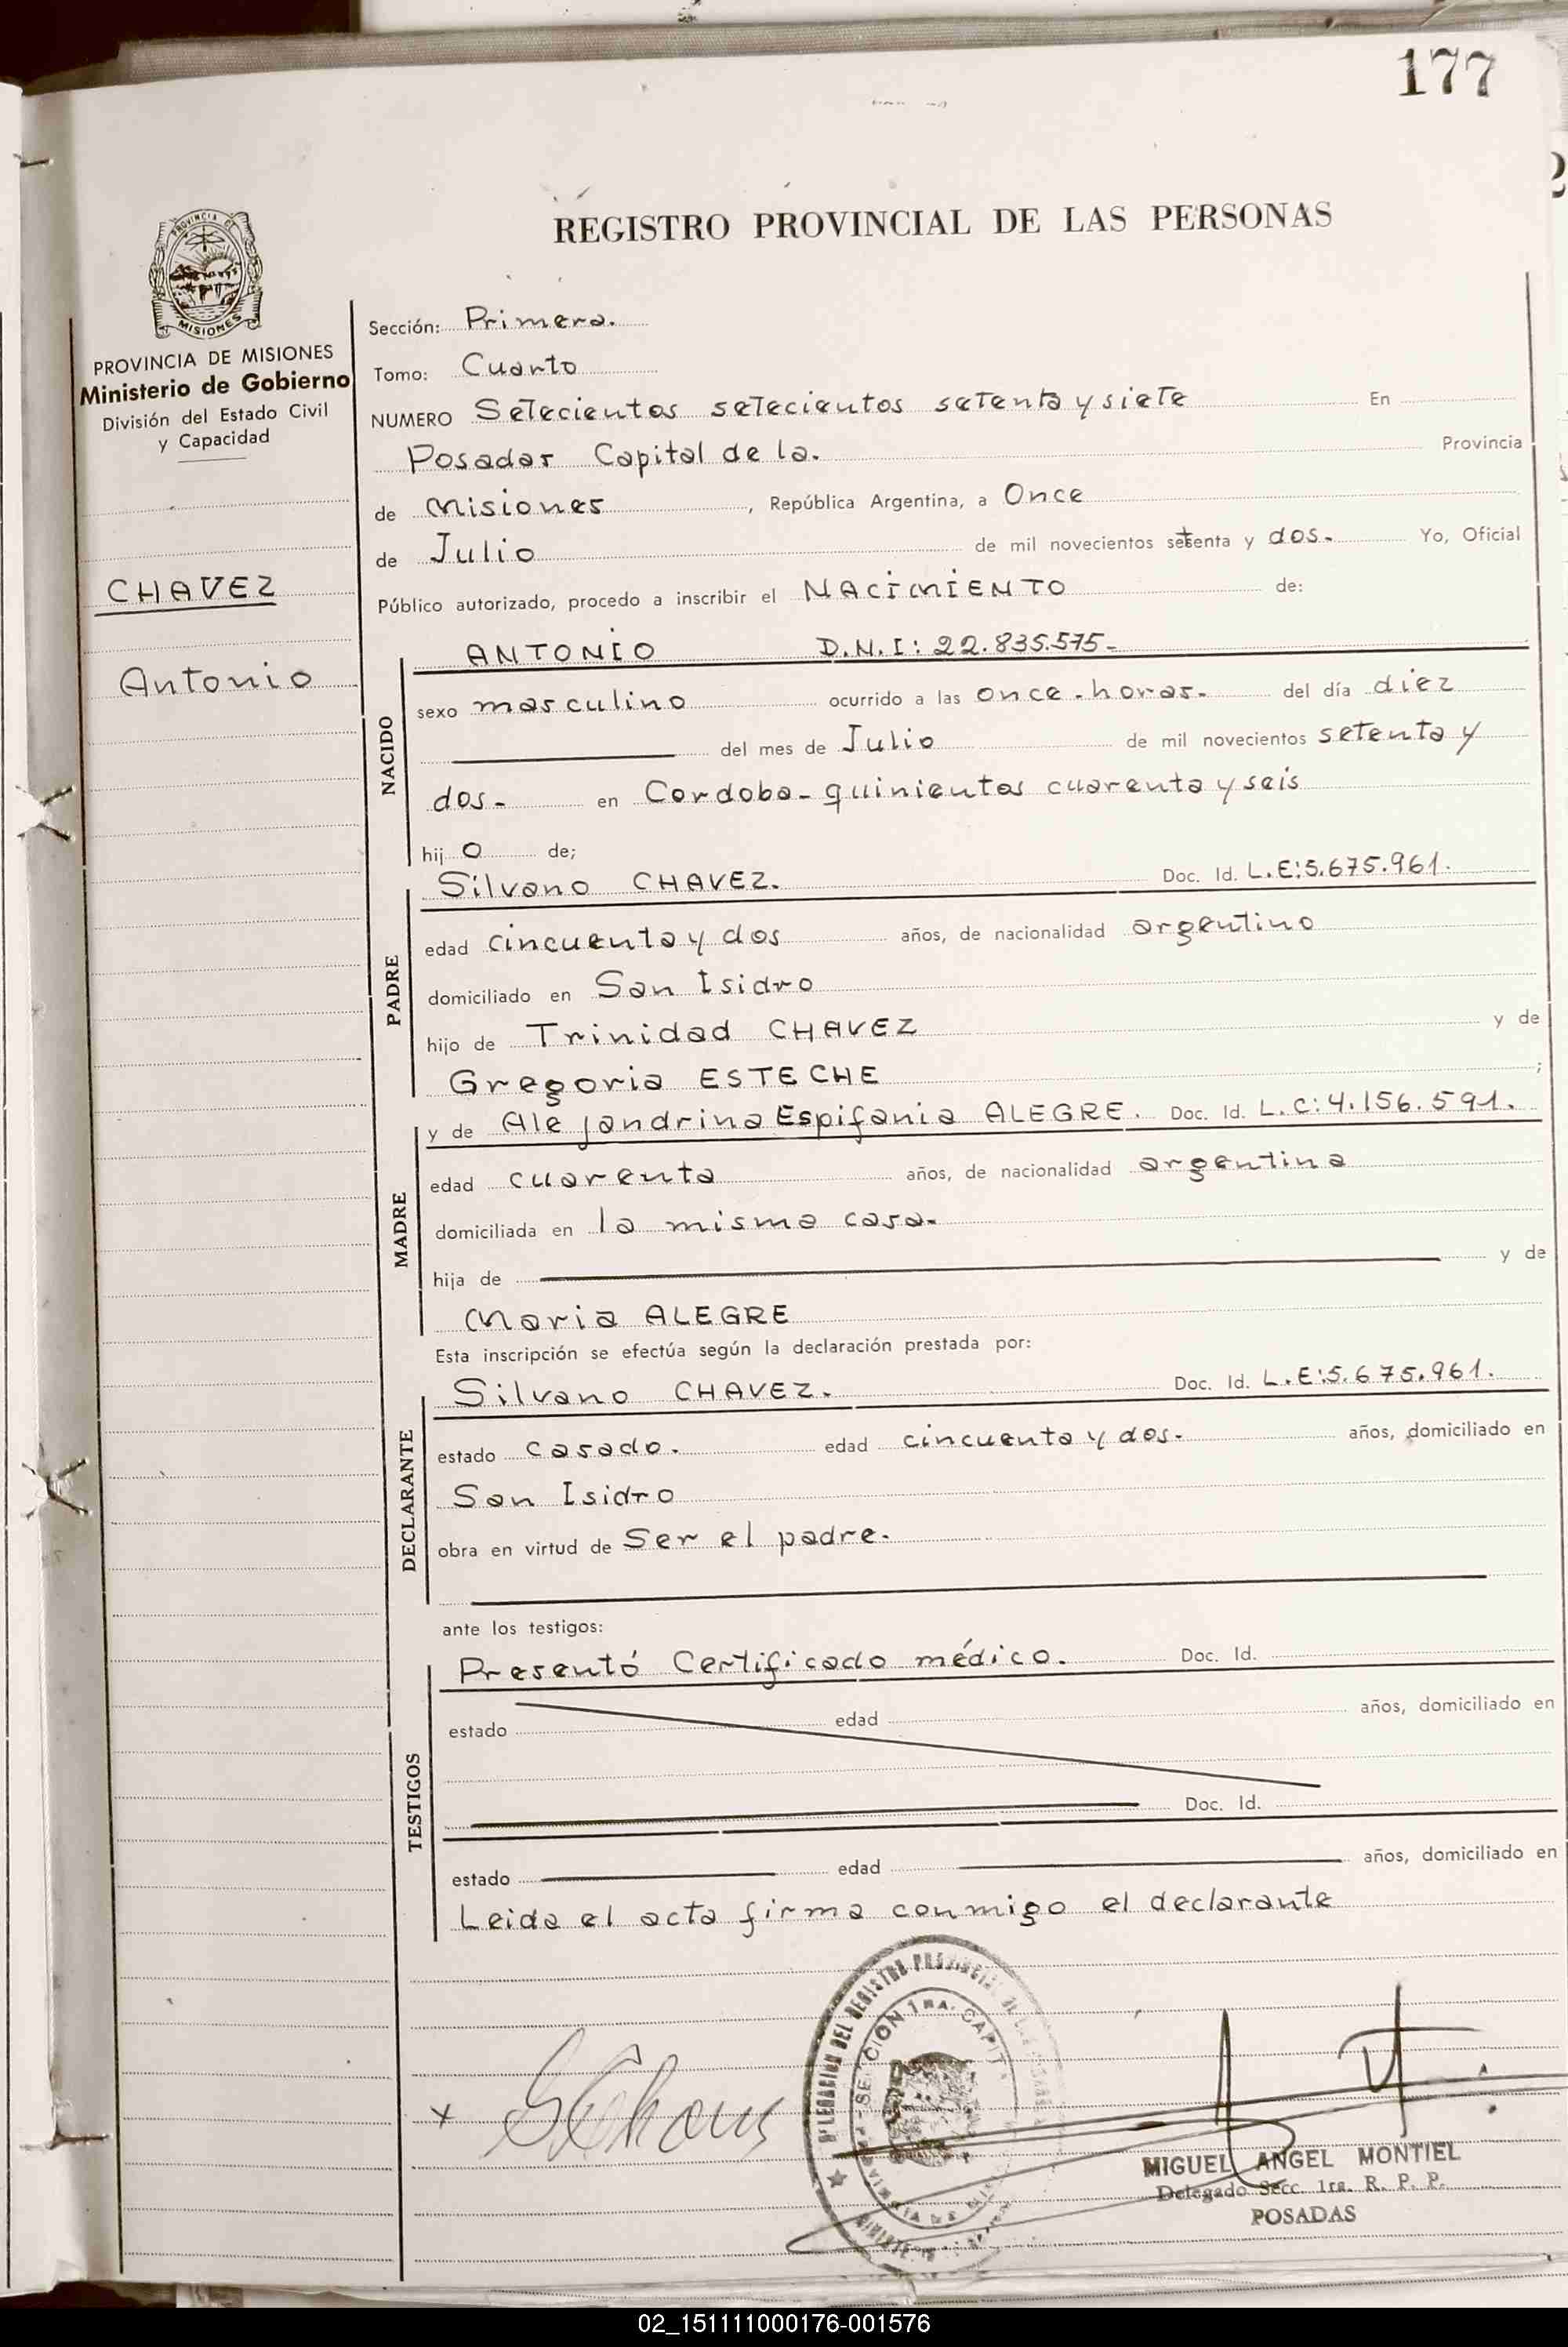 177
REGISTRO PROVINCIAL DE LAS PERSONAS
PROVINCIA DE
MISIONES
PROVINCIA DE MISIONES
Ministerio de Gobierno
División del Estado Civil
y Capacidad
CHAVEZ
Antonio
Sección: Primera.
Tomo: Cuarto
NUMERO Setecientos setecientos setenta y siete En
Posadas Capital de la. Provincia
de Misiones, República Argentina, a Once
de Julio de mil novecientos setenta y dos. Yo, Oficial
Público autorizado, procedo a inscribir el NACIMIENTO de:
NACIDO
ANTONIO D.N.I: 22.835.575-
sexo masculino ocurrido a las once-horas- del día diez
del mes de Julio de mil novecientos setenta y
dos- en Cordoba- quinientos cuarenta y seis
hijo de;
PADRE
Silvano CHAVEZ. Doc. Id. L.E:5.675.961.
edad cincuenta y dos años, de nacionalidad argentino
domiciliado en San Isidro
hijo de Trinidad CHAVEZ y de
Gregoria ESTECHE ;
MADRE
y de Alejandrina Espifania ALEGRE. Doc. Id. L.C:4.156.591.
edad cuarenta años, de nacionalidad argentina
domiciliada en la misma casa-
hija de y de
Maria ALEGRE
Esta inscripción se efectúa según la declaración prestada por:
DECLARANTE
Silvano CHAVEZ. Doc. Id. L.E:5.675.961.
estado casado. edad cincuenta y dos- años, domiciliado en
San Isidro
obra en virtud de Ser el padre-
ante los testigos:
TESTIGOS
Presentó Certificado médico. Doc. Id.
estado edad años, domiciliado en
Doc. Id.
estado edad años, domiciliado en
Leida el acta firma conmigo el declarante
DELEGACION DEL REGISTRO PROVINCIAL DE LAS
SECCION 1RA. CAPIT
x SChaves
MIGUEL ANGEL MONTIEL
Delegado Secc. 1ra. R. P. P.
POSADAS
02_151111000176-001576